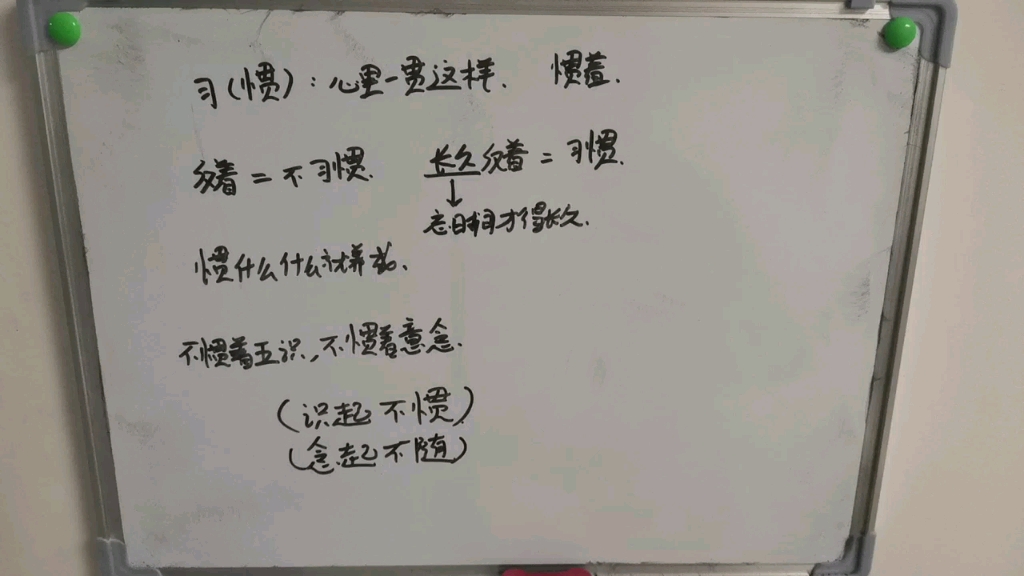 习(惯):心里一贯这样. 惯着.
着=不习惯. 长久着=习惯.
忘时间才得长久.
惯什么什么就养成.
不惯着五识,不惯着意念.
(识起不惯)
(念起不随)